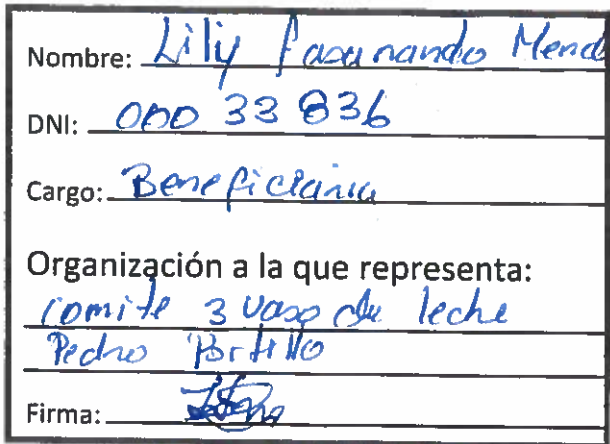 Nombre: Lily Pasunando Mend
DNI: 000 33 836
Cargo: Beneficiaria
Organización a la que representa:
comite 3 vaso de leche
Pedro Portillo
Firma: